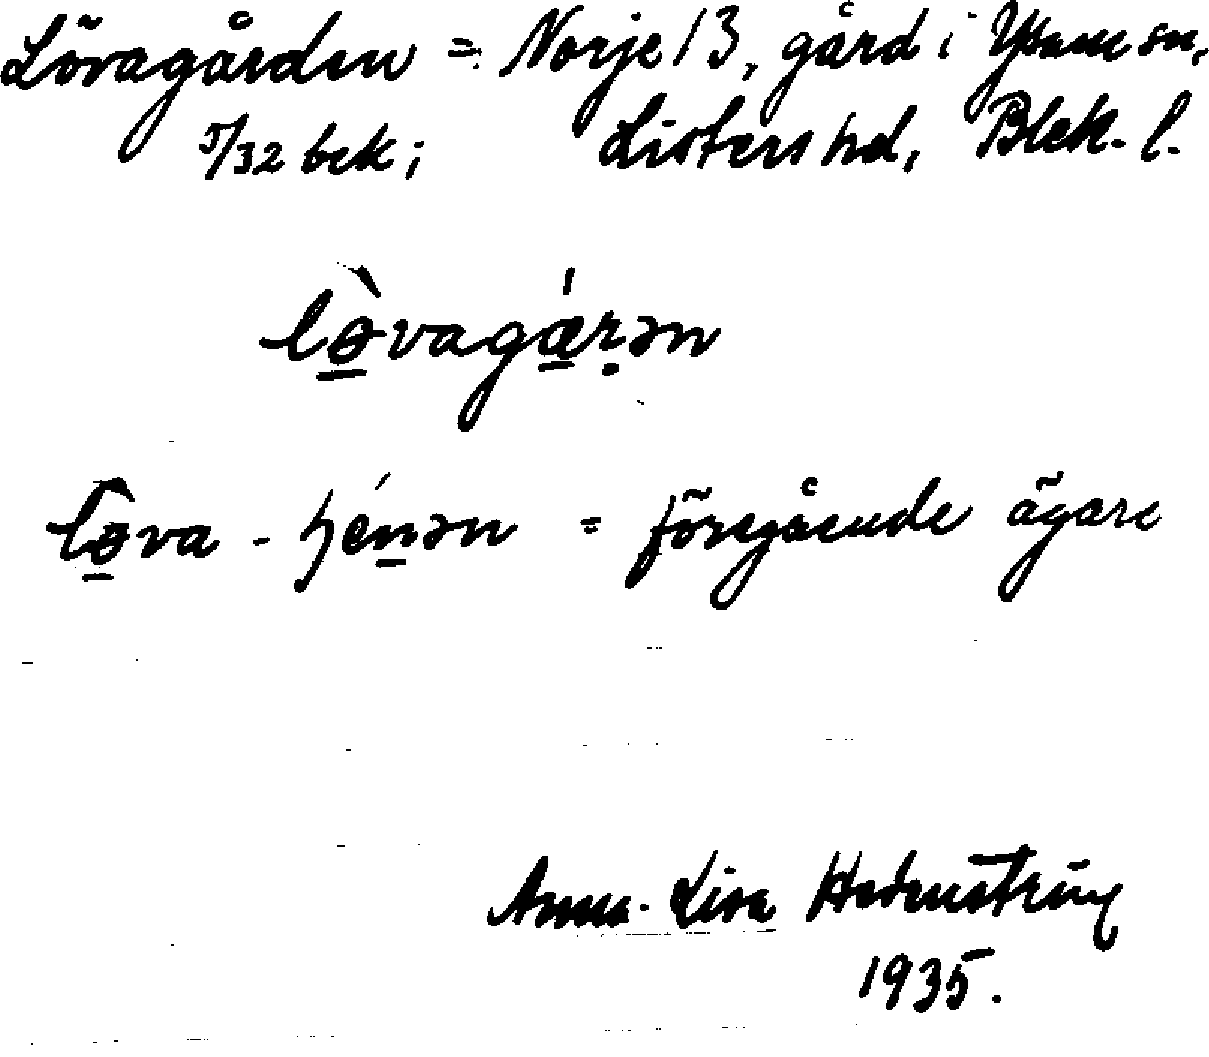 Lövagården = Norje 13, gård i Ysane sn,
5/32 bek; Listers hd, Blek. l.
lø̱̀vagǽ̱ṛən
lø̱̀va - héṉən = föregående ägare
Anna-Lisa Hedenstring
1935.